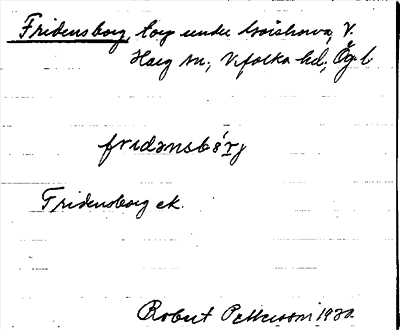 Fridensborg, torp under Boishov, V.
Harg sn; Vifolka hd; Ög. l
fridənsbórj
Fridensborg ek.
Robert Pettersson 1930.